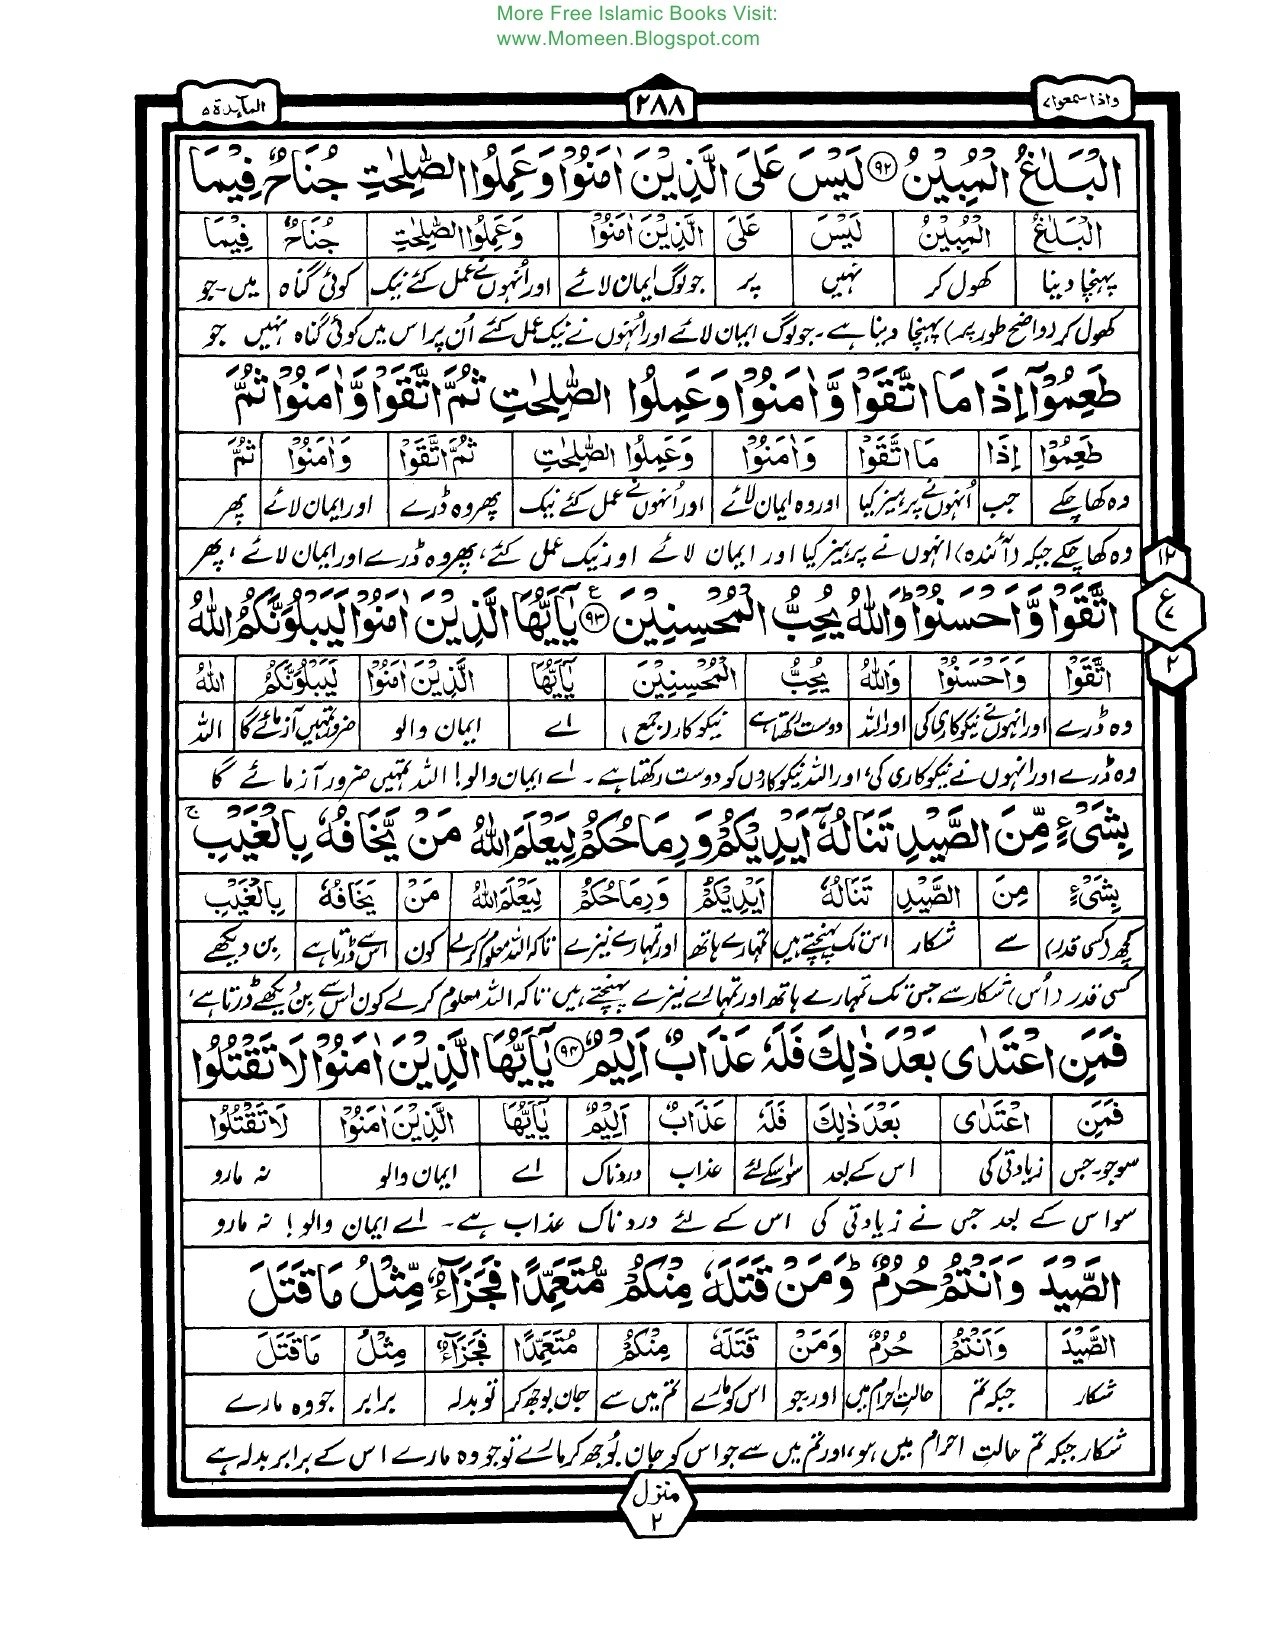 More Free Islamic Books Visit:
www.Momeen.Blogspot.com
واذا سمعوا ۷
۲۸۸
المآيدة ۵
الْبَلٰغُ الْمُبِيْنُ ۹۲ لَيْسَ عَلَى الَّذِيْنَ اٰمَنُوْا وَعَمِلُوا الصّٰلِحٰتِ جُنَاحٌ فِيْمَا
الْبَلٰغُ الْمُبِيْنُ لَيْسَ عَلَى الَّذِيْنَ اٰمَنُوْا وَعَمِلُوا الصّٰلِحٰتِ جُنَاحٌ فِيْمَا
پہنچا دینا کھول کر نہیں پر جو لوگ ایمان لائے اور اُنہوں نے عمل کئے نیک کوئی گناہ میں۔جو
کھول کر (واضح طور پر) پہنچا دینا ہے ۔ جو لوگ ایمان لائے اور اُنہوں نے نیک عمل کئے اُن پر اس میں کوئی گناہ نہیں جو
طَعِمُوْٓا اِذَا مَا اتَّقَوْا وَّاٰمَنُوْا وَعَمِلُوا الصّٰلِحٰتِ ثُمَّ اتَّقَوْا وَّاٰمَنُوْا ثُمَّ
طَعِمُوْٓا اِذَا مَا اتَّقَوْا وَاٰمَنُوْا وَعَمِلُوا الصّٰلِحٰتِ ثُمَّ اتَّقَوْا وَاٰمَنُوْا ثُمَّ
وہ کھا چکے جب اُنہوں نے پرہیز کیا اور وہ ایمان لائے اور اُنہوں نے عمل کئے نیک پھر وہ ڈرے اور ایمان لائے پھر
وہ کھا چکے جبکہ (آئندہ) انہوں نے پرہیز کیا اور ایمان لائے اور نیک عمل کئے، پھر وہ ڈرے اور ایمان لائے ، پھر
۱۲
اتَّقَوْا وَّاَحْسَنُوْا ؕ وَاللّٰهُ يُحِبُّ الْمُحْسِنِيْنَ ۹۳ ع يٰٓاَيُّهَا الَّذِيْنَ اٰمَنُوْا لَيَبْلُوَنَّكُمُ اللّٰهُ
ع ۷
۲
اتَّقَوْا وَاَحْسَنُوْا وَاللّٰهُ يُحِبُّ الْمُحْسِنِيْنَ يٰٓاَيُّهَا الَّذِيْنَ اٰمَنُوْا لَيَبْلُوَنَّكُمُ اللّٰهُ
وہ ڈرے اور انہوں نے نیکوکاری کی اور اللہ دوست رکھتا ہے نیکو کار (جمع) اے ایمان والو ضرور تمہیں آزمائے گا اللہ
وہ ڈرے اور انہوں نے نیکو کاری کی، اور اللہ نیکو کاروں کو دوست رکھتا ہے ۔ اے ایمان والو! اللہ تمہیں ضرور آزمائے گا
بِشَيْءٍ مِّنَ الصَّيْدِ تَنَالُهٗٓ اَيْدِيْكُمْ وَرِمَاحُكُمْ لِيَعْلَمَ اللّٰهُ مَنْ يَّخَافُهٗ بِالْغَيْبِ ۚ
بِشَيْءٍ مِنَ الصَّيْدِ تَنَالُهٗ اَيْدِيْكُمْ وَرِمَاحُكُمْ لِيَعْلَمَ اللّٰهُ مَنْ يَخَافُهٗ بِالْغَيْبِ
کچھ (کسی قدر) سے شکار اس تک پہنچتے ہیں تمہارے ہاتھ اور تمہارے نیزے تاکہ اللہ معلوم کرلے کون اس سے ڈرتا ہے بن دیکھے
کسی قدر (اُس) شکار سے جس تک تمہارے ہاتھ اور تمہارے نیزے پہنچتے ہیں تاکہ اللہ معلوم کرلے کون اُس سے بِن دیکھے ڈرتا ہے،
فَمَنِ اعْتَدٰى بَعْدَ ذٰلِكَ فَلَهٗ عَذَابٌ اَلِيْمٌ ۹۴ يٰٓاَيُّهَا الَّذِيْنَ اٰمَنُوْا لَا تَقْتُلُوا
فَمَنِ اعْتَدٰى بَعْدَ ذٰلِكَ فَلَهٗ عَذَابٌ اَلِيْمٌ يٰٓاَيُّهَا الَّذِيْنَ اٰمَنُوْا لَا تَقْتُلُوا
سو جو۔جس زیادتی کی اس کے بعد سو اسکے لئے عذاب دردناک اے ایمان والو نہ مارو
سو اس کے بعد جس نے زیادتی کی اس کے لئے دردناک عذاب ہے۔ اے ایمان والو! نہ مارو
الصَّيْدَ وَاَنْتُمْ حُرُمٌ ؕ وَمَنْ قَتَلَهٗ مِنْكُمْ مُّتَعَمِّدًا فَجَزَآءٌ مِّثْلُ مَا قَتَلَ
الصَّيْدَ وَاَنْتُمْ حُرُمٌ وَمَنْ قَتَلَهٗ مِنْكُمْ مُتَعَمِّدًا فَجَزَآءٌ مِثْلُ مَا قَتَلَ
شکار جبکہ تم حالتِ احرام میں اور جو اس کو مارے تم میں سے جان بوجھ کر تو بدلہ برابر جو وہ مارے
شکار جبکہ تم حالتِ احرام میں ہو، اور تم میں سے جو اس کو جان بُوجھ کر مارے تو جو وہ مارے اس کے برابر بدلہ ہے
منزل ۲